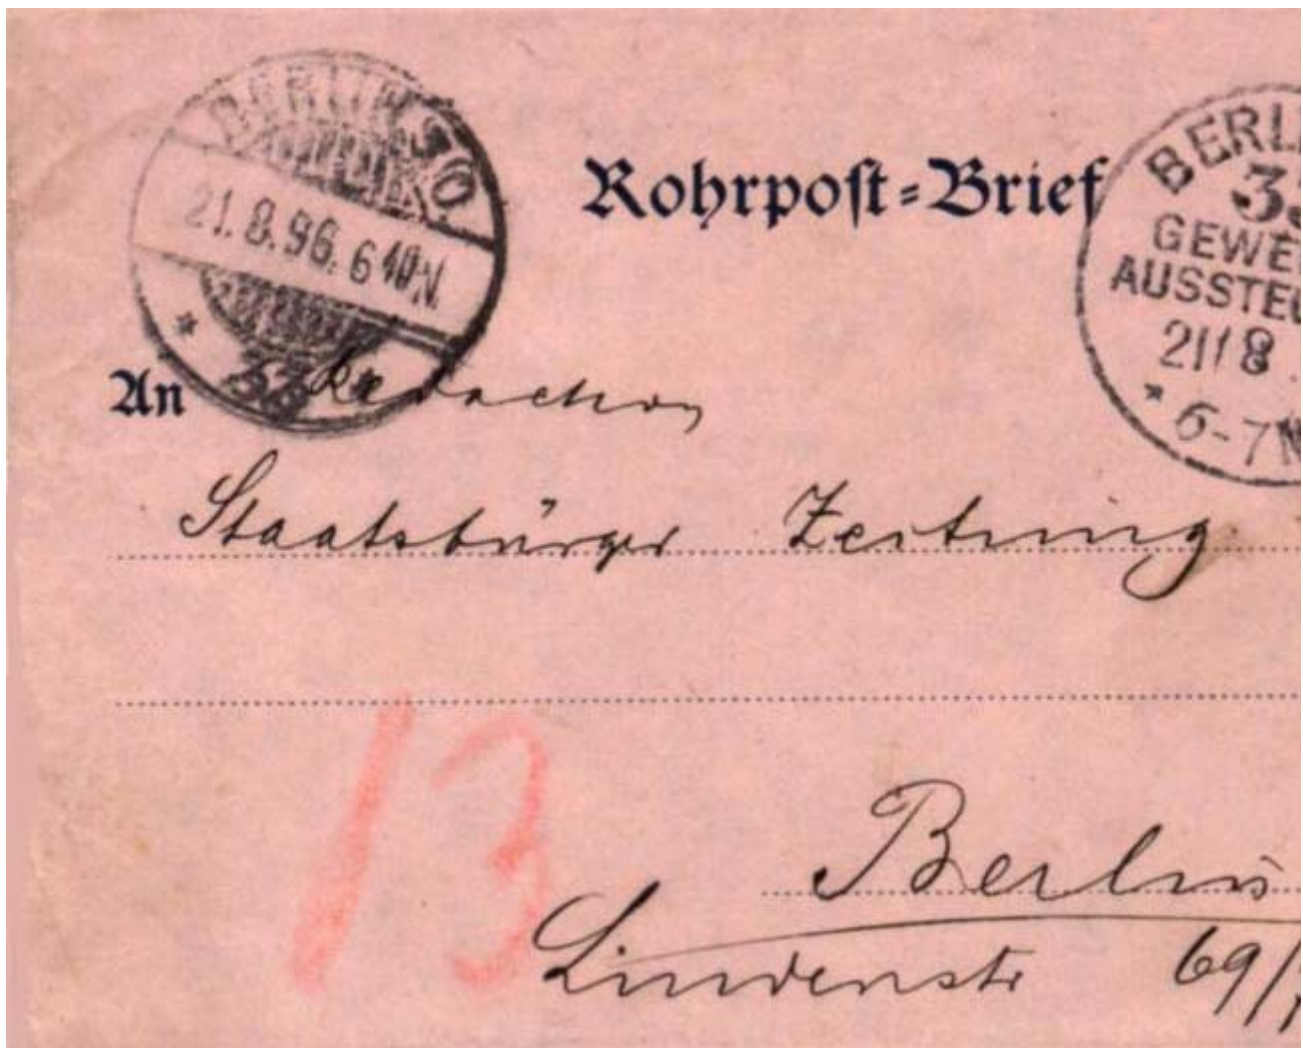 BERLIN SO.
21.8.96. 6 40 N.
*
33
Rohrpost-Brief
BERLI
33
GEWE
AUSSTEL
21/8
* 6-7 N
An Redaction
Staatsbürger Zeitung
13
Berlin
Lindenstr 69/